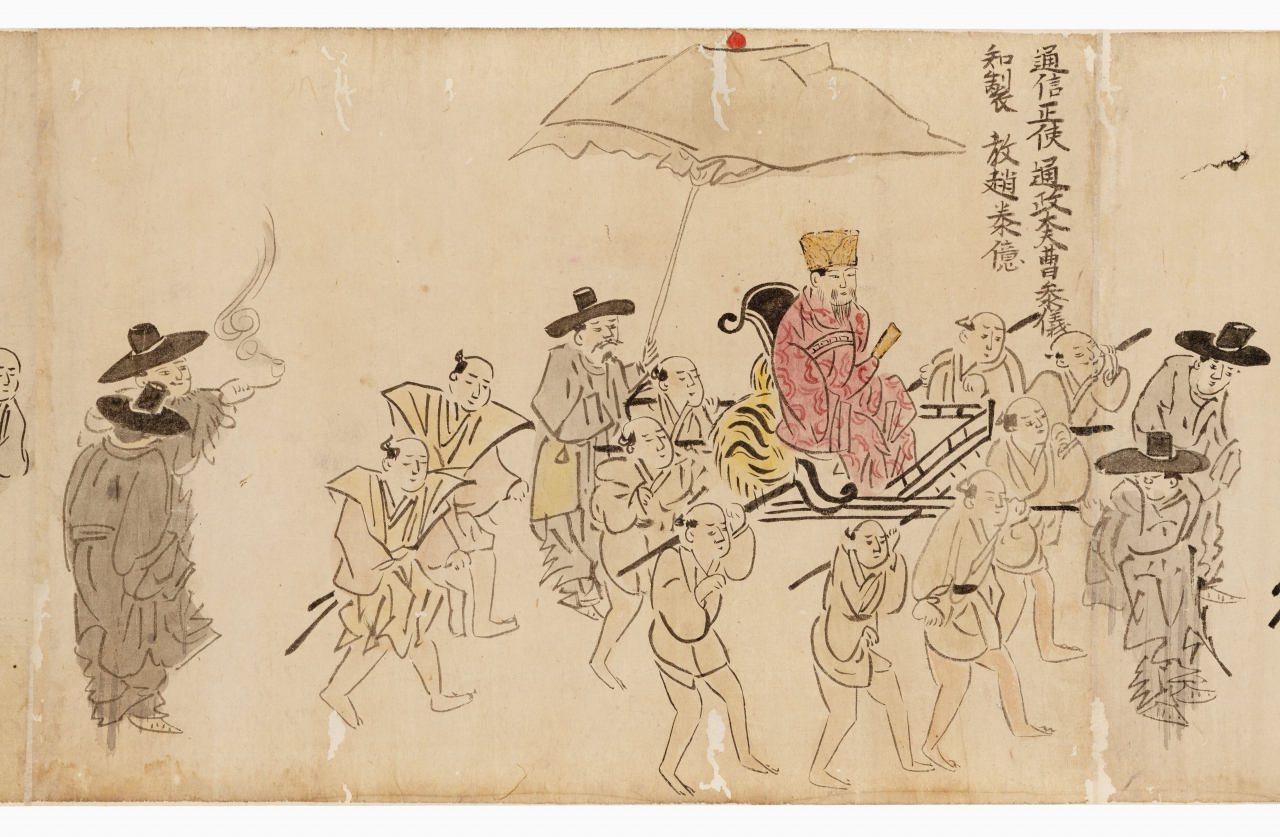 通信正使 通政大夫曹泰儀
知製 教趙泰億